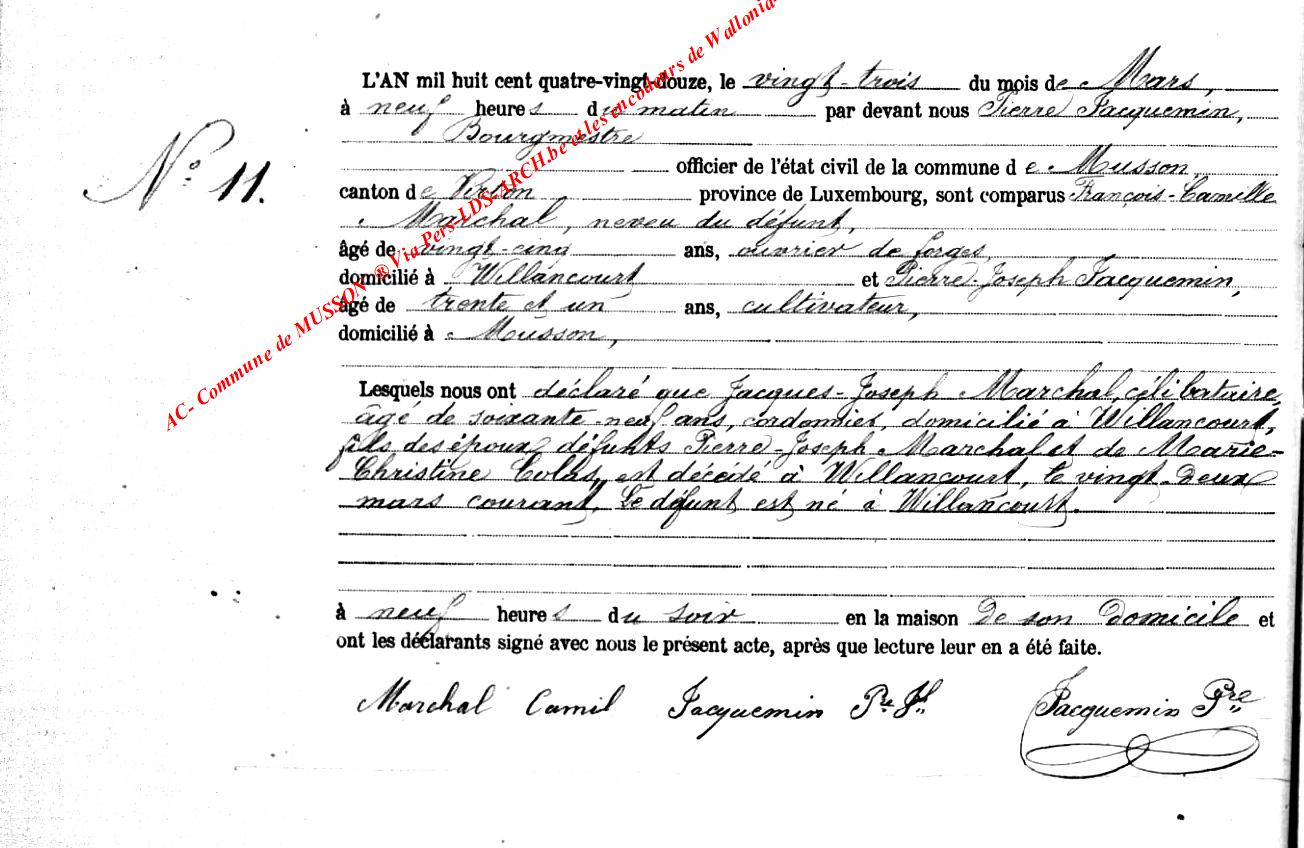 L'AN mil huit cent quatre-vingt-douze, le vingt-trois du mois de Mars,
à neuf heures du matin par devant nous Pierre Jacquemin,
Bourgmestre
officier de l'état civil de la commune de Musson,
N° 11.
canton de Virton province de Luxembourg, sont comparus François-Camille
Marchal, neveu du défunt,
âgé de vingt-cinq ans, ouvrier de forges,
domicilié à Willancourt et Pierre-Joseph Jacquemin,
âgé de trente et un ans, cultivateur,
domicilié à Musson,
Lesquels nous ont déclaré que Jacques-Joseph Marchal, célibataire,
âgé de soixante-neuf ans, cordonnier, domicilié à Willancourt,
fils des époux défunts Pierre-Joseph Marchal et de Marie-
Christine Colas, est décédé à Willancourt, le vingt-deux
mars courant. Le défunt est né à Willancourt.
à neuf heures du soir en la maison de son domicile et
ont les déclarants signé avec nous le présent acte, après que lecture leur en a été faite.
Marchal Camil Jacquemin Pre Jh Jacquemin Pre
AC- Commune de MUSSON ® Via Pers-LDS-ARCH.be et les encodeurs de Wallonia-